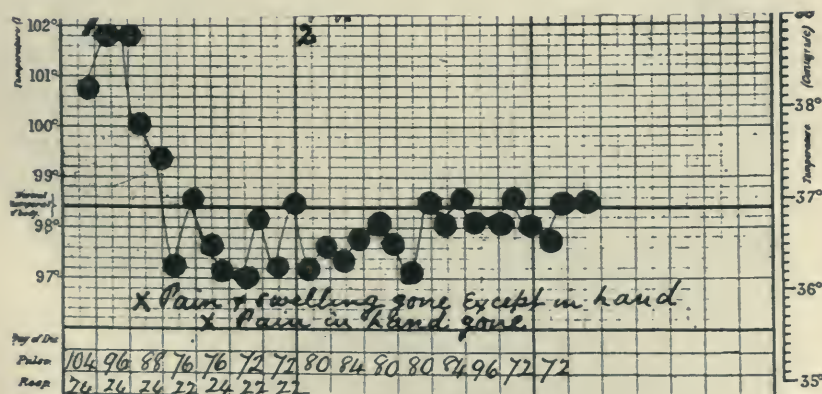 102°
101°
100°
99°
98°
97°
Temperature
2
38°
37°
36°
35°
Temperature (Centigrade)
Normal Temperature of body
X Pain + swelling gone Except in hand
X Pain in hand gone
Day of Dis
Pulse 104 96 88 76 76 72 72 80 84 80 80 84 96 72 72
Resp. 24 24 24 22 24 22 22